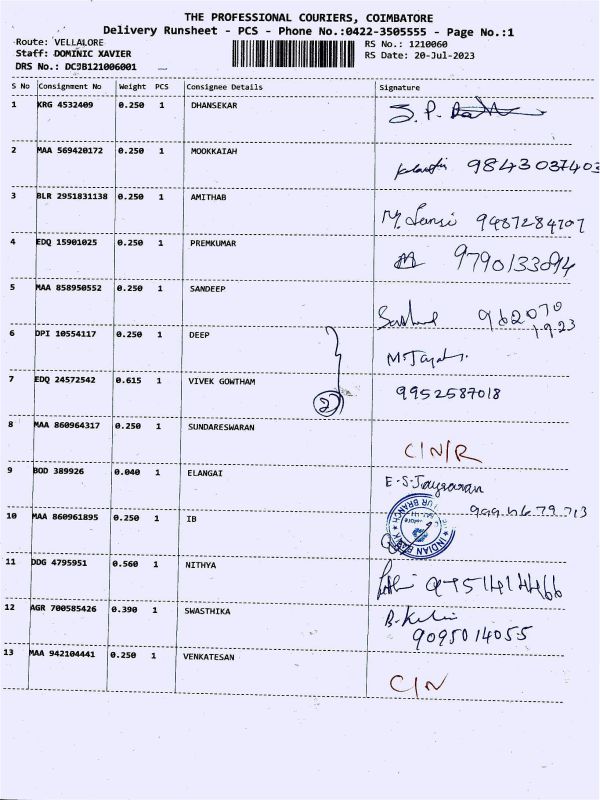 THE PROFESSIONAL COURIERS, COIMBATORE
Delivery Runsheet - PCS - Phone No.:0422-3505555 - Page No.:1
Route: VELLALORE RS No.: 1210060
Staff: DOMINIC XAVIER RS Date: 20-Jul-2023
DRS No.: DC9B121006001
S No Consignment No Weight PCS Consignee Details Signature
1 KRG 4532409 0.250 1 DHANSEKAR S.P.
2 MAA 569420172 0.250 1 MOOKKAIAH 9843037403
3 BLR 2951831138 0.250 1 AMITHAB 9487284707
4 EDQ 15901025 0.250 1 PREMKUMAR 9790133094
5 MAA 858950552 0.250 1 SANDEEP
962070
1.9.23
6 DPI 10554117 0.250 1 DEEP
7 EDQ 24572542 0.615 1 VIVEK GOWTHAM 9952587018
2
8 MAA 860964317 0.250 1 SUNDARESWARAN
C/N/R
9 BOD 389926 0.040 1 ELANGAI
10 MAA 860961895 0.250 1 IB
INDIAN BANK
11 DDG 4795951 0.560 1 NITHYA
12 AGR 700585426 0.390 1 SWASTHIKA
9095014055
13 MAA 942104441 0.250 1 VENKATESAN
C/N